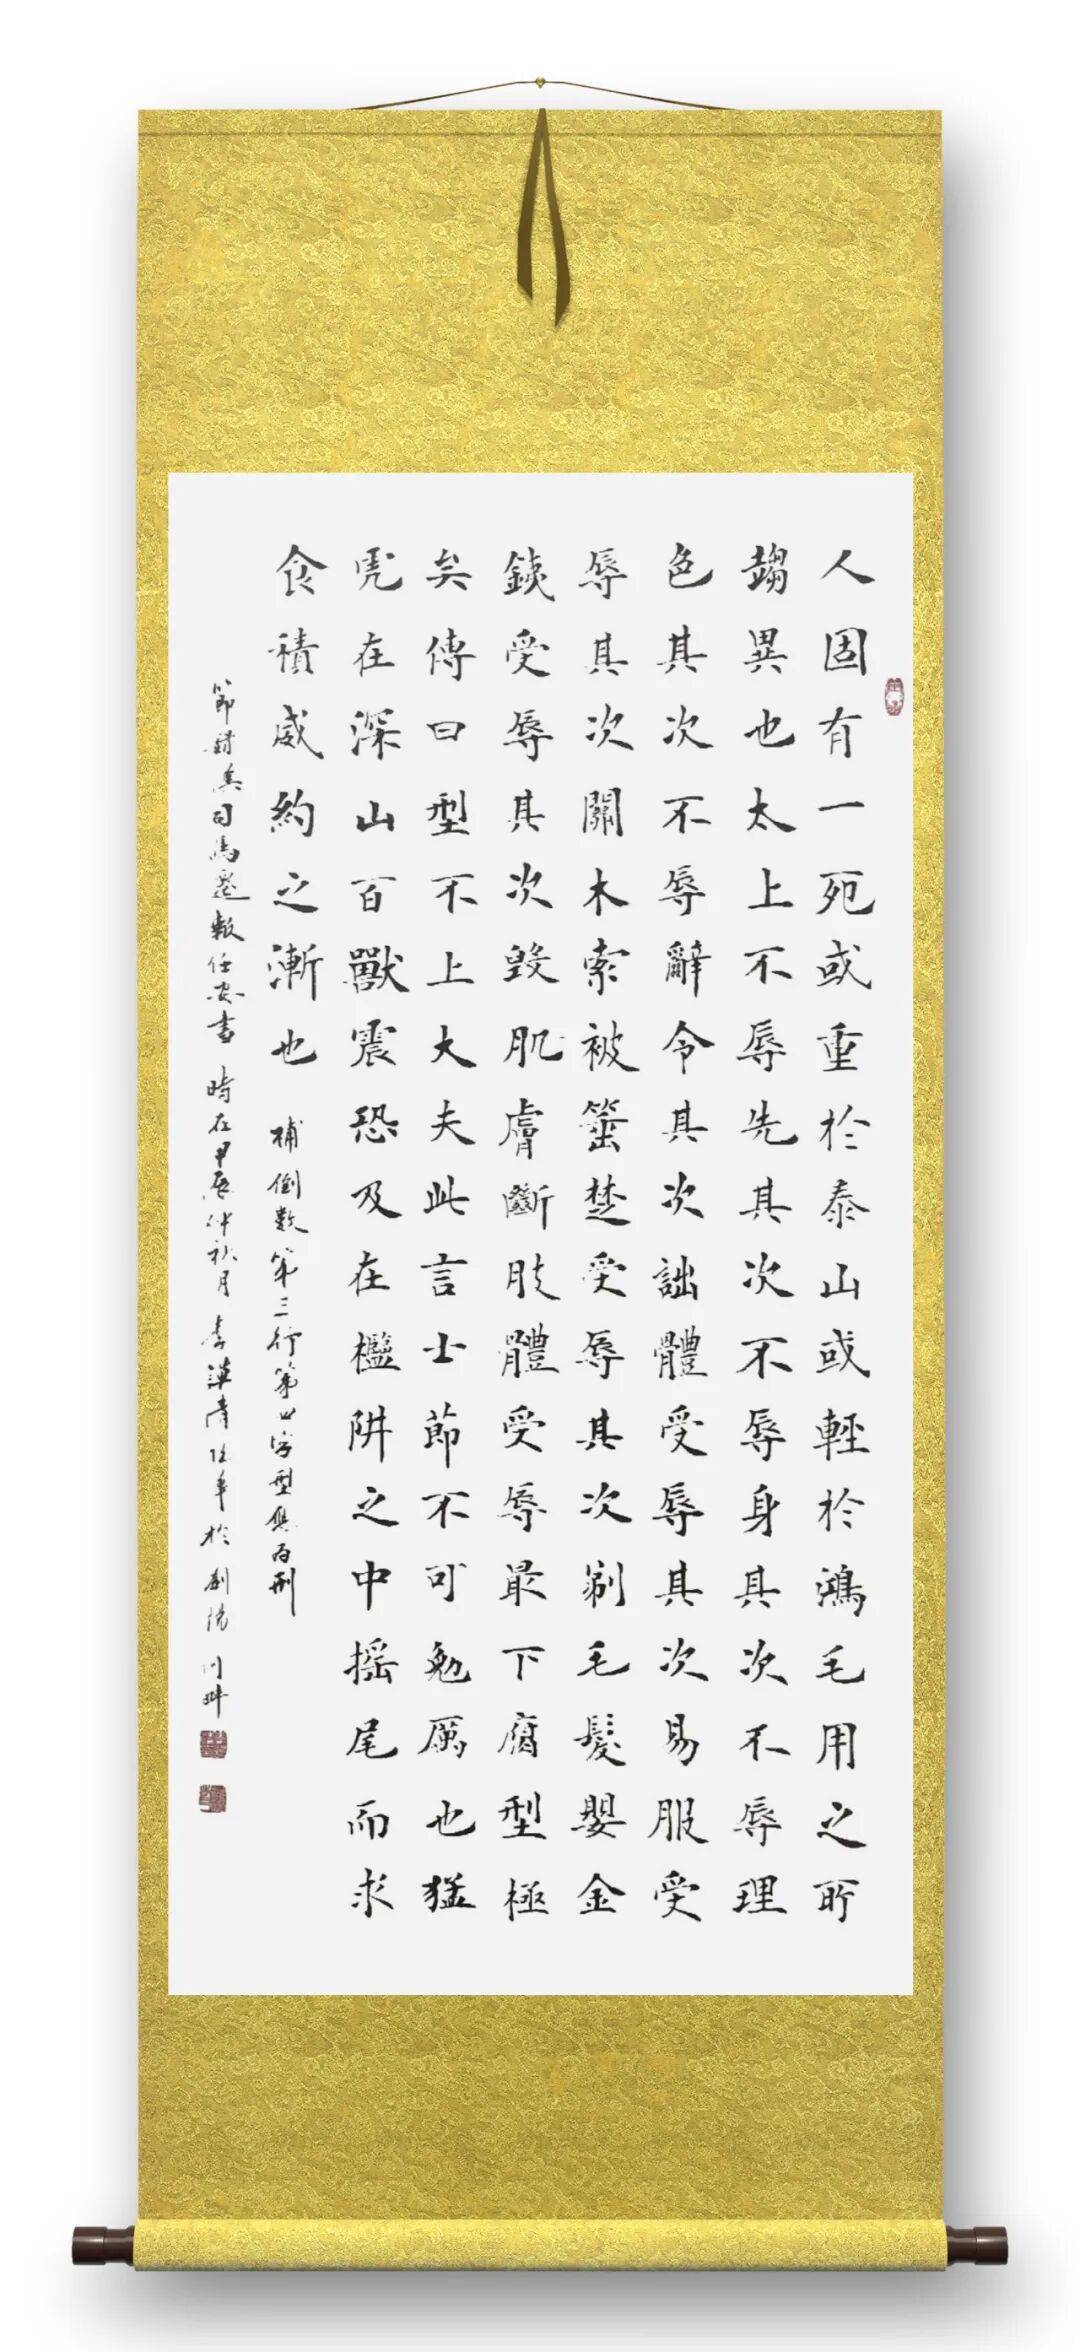 人固有一死或重於泰山或輕於鴻毛用之所
趨異也太上不辱先其次不辱身其次不辱理
色其次不辱辭令其次詘體受辱其次易服受
辱其次關木索被箠楚受辱其次剔毛髮嬰金
銕受辱其次毀肌膚斷肢體受辱最下腐型極
矣傳曰型不上大夫此言士節不可勉厲也猛
虎在深山百獸震恐及在檻阱之中搖尾而求
食積威約之漸也 補倒數第三行第四字型應為刑
節錄司馬遷報任安書 時在甲辰仲秋月 李於